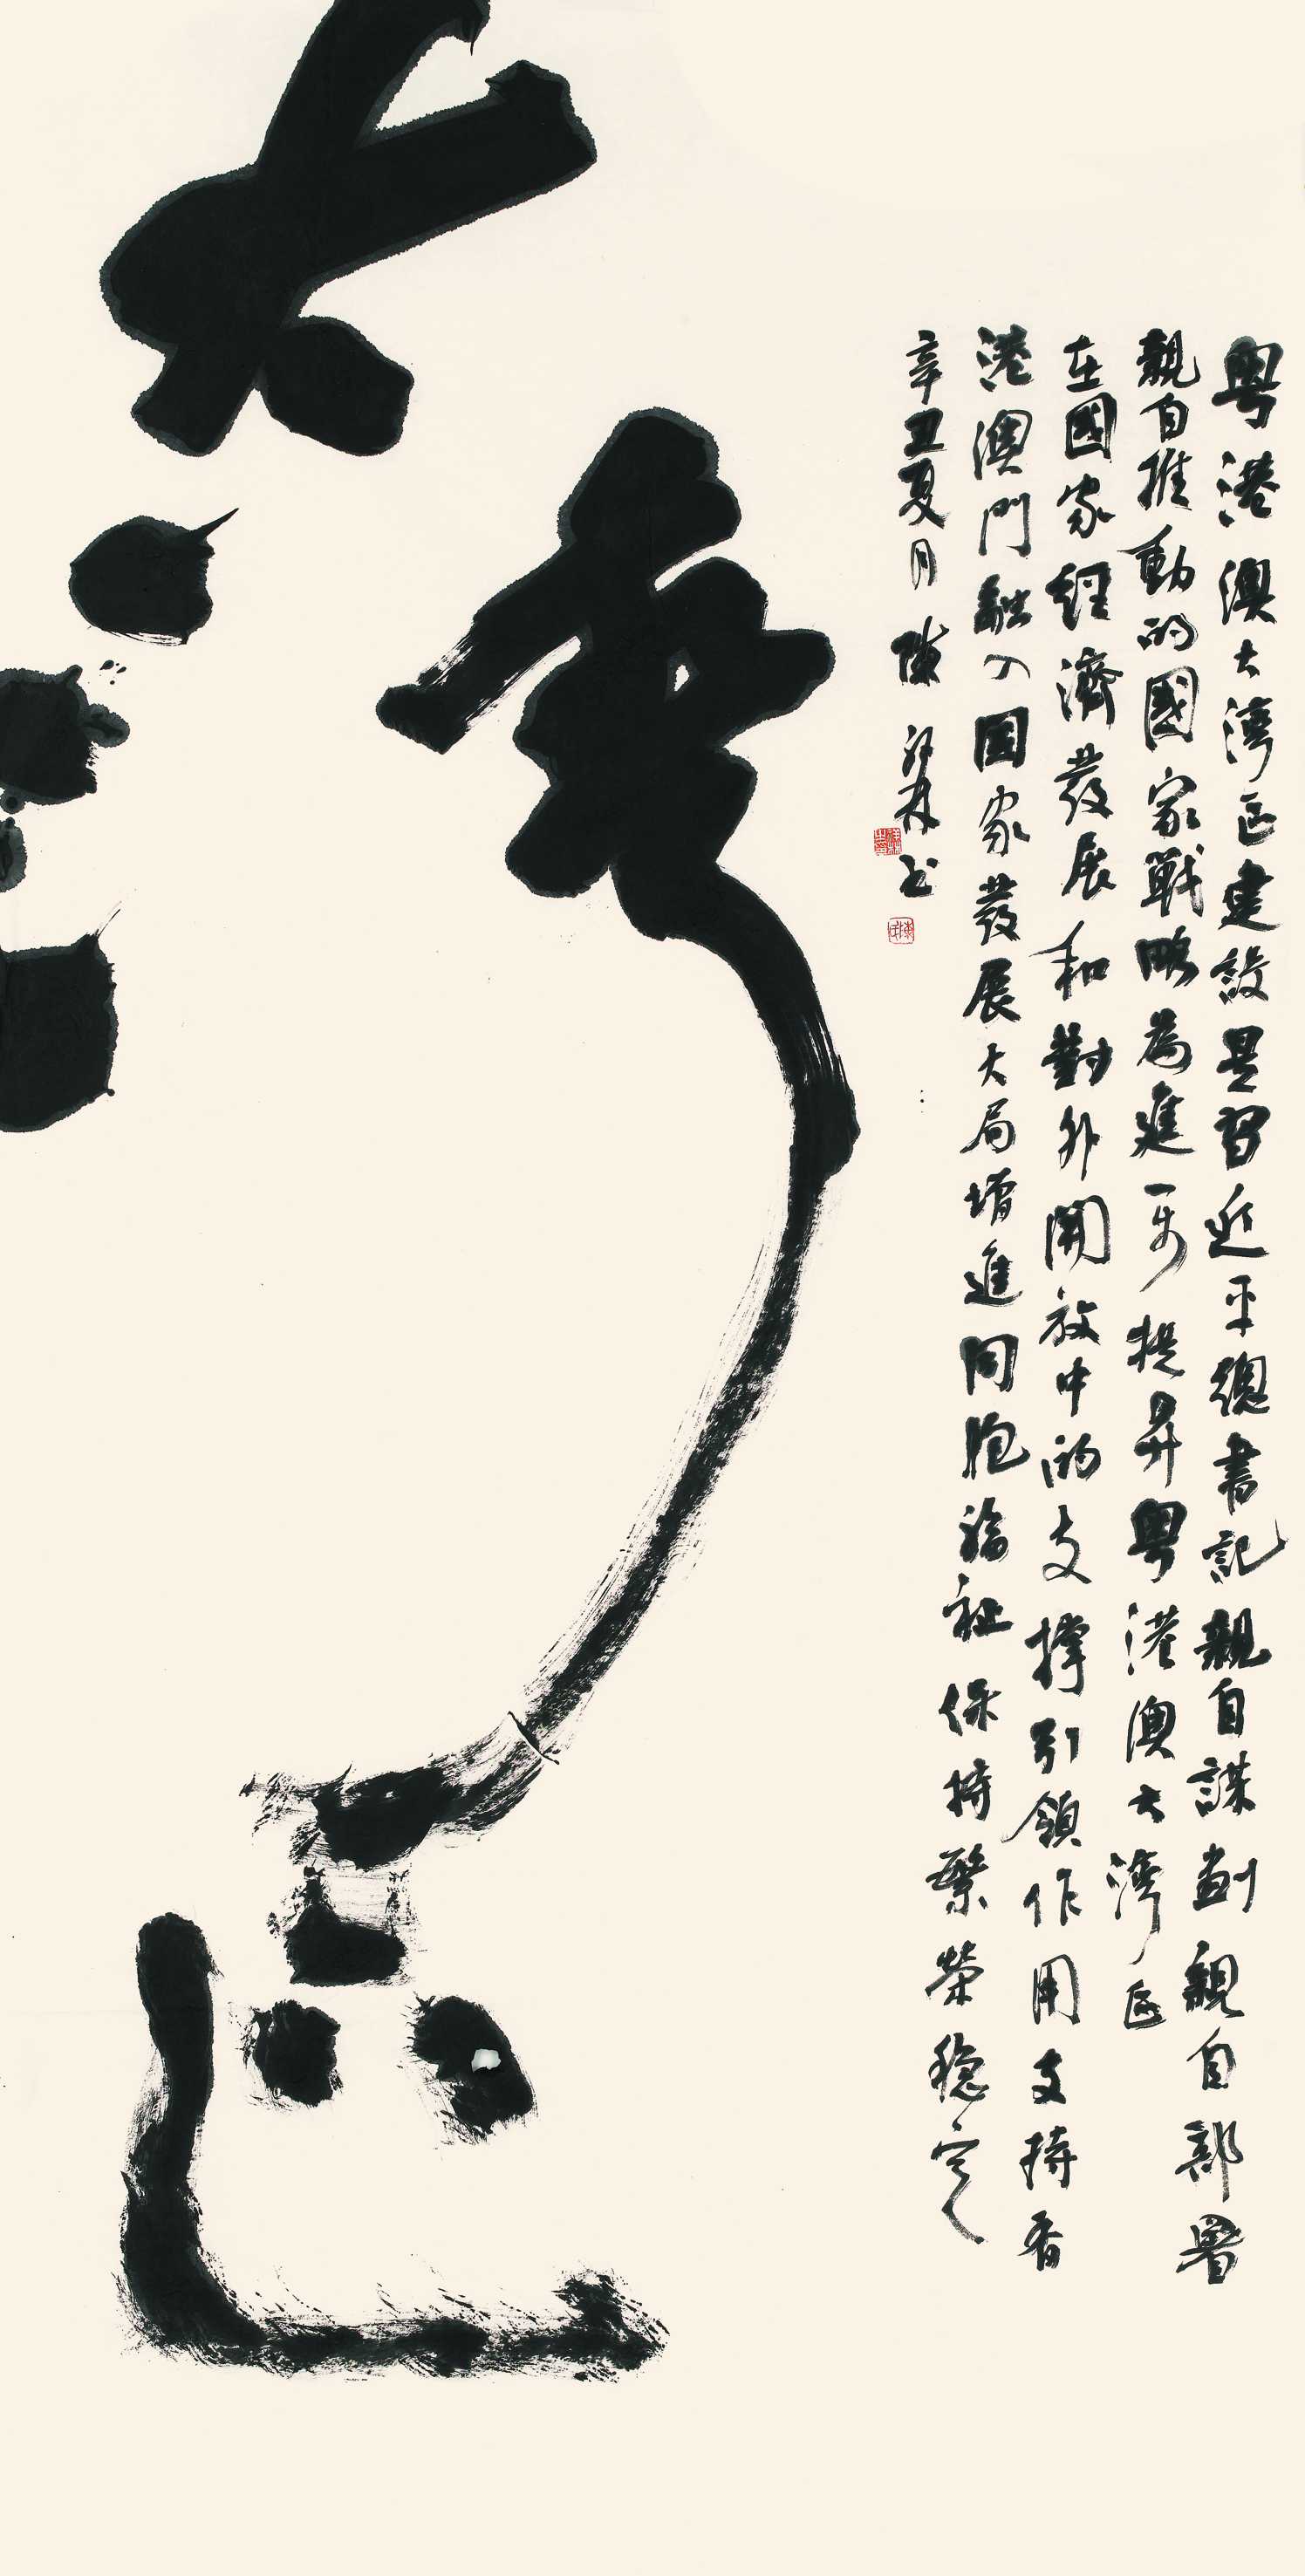 粤港澳大灣區建設是習近平總書記親自謀劃親自部署
親自推動的國家戰略為進一步提昇粤港澳大灣區
在國家經濟發展和對外開放中的支撐引領作用支持香
港澳門融入國家發展大局增進同胞福祉保持繁榮穩定
辛丑夏月陳書
大灣區